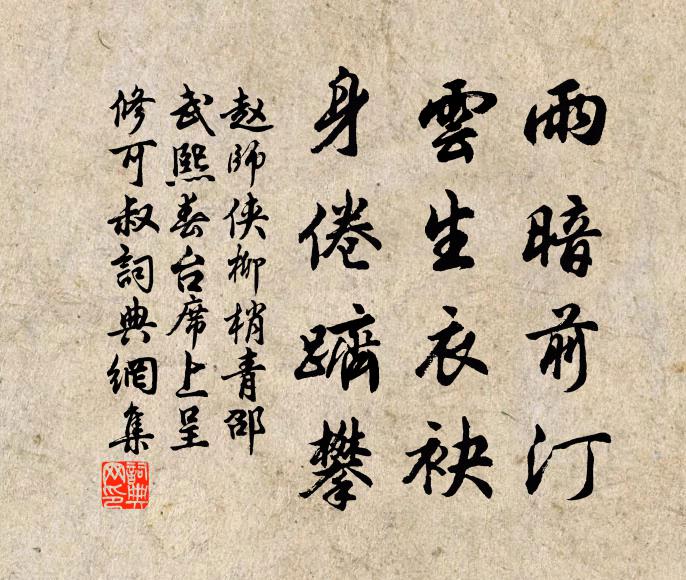 雨暗前汀
雲生衣袂
身倦躋攀
赵師侠柳梢青邵
武熙春台席上呈
修可叔詞典網集
詞典网印